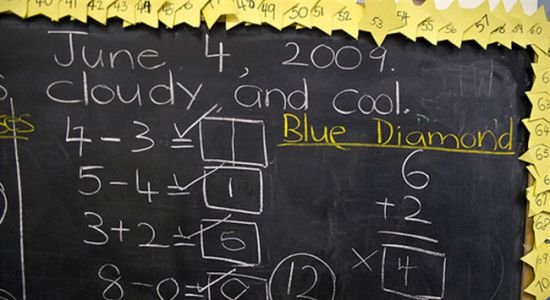 40 41 42 43 44 45 46 47 48 49 50 51 52 53 54 55 56 57 58 59 60
June 4, 2009.
cloudy and cool.
Blue Diamond
4-3=1
5-4=1
3+2=5
8-0=0
12
6
+2
× 4
64
65
67
69
70